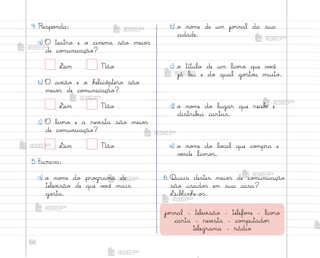 4. Responda:
a) O teatro e o cinema são meios
de comunicação?
Sim Não
b) O avião e o helicóptero são
meios de comunicação?
Sim Não
c) O livro e a revista são meios
de comunicação?
Sim Não
5. Escreva:
a) o nome do programa de
televisão de que você mais
gosta.
66
b) o nome de um jornal da sua
cidade.
c) o título de um livro que você
já leu e do qual gostou muito.
d) o nome do lugar que recebe e
distribui cartas.
e) o nome do local que compra e
vende livros.
6. Quais destes meios de comunicação
são usados em sua casa?
Sublinhe-os.
jornal - televisão - telefone - livro
carta - revista - computador
telegrama - rádio